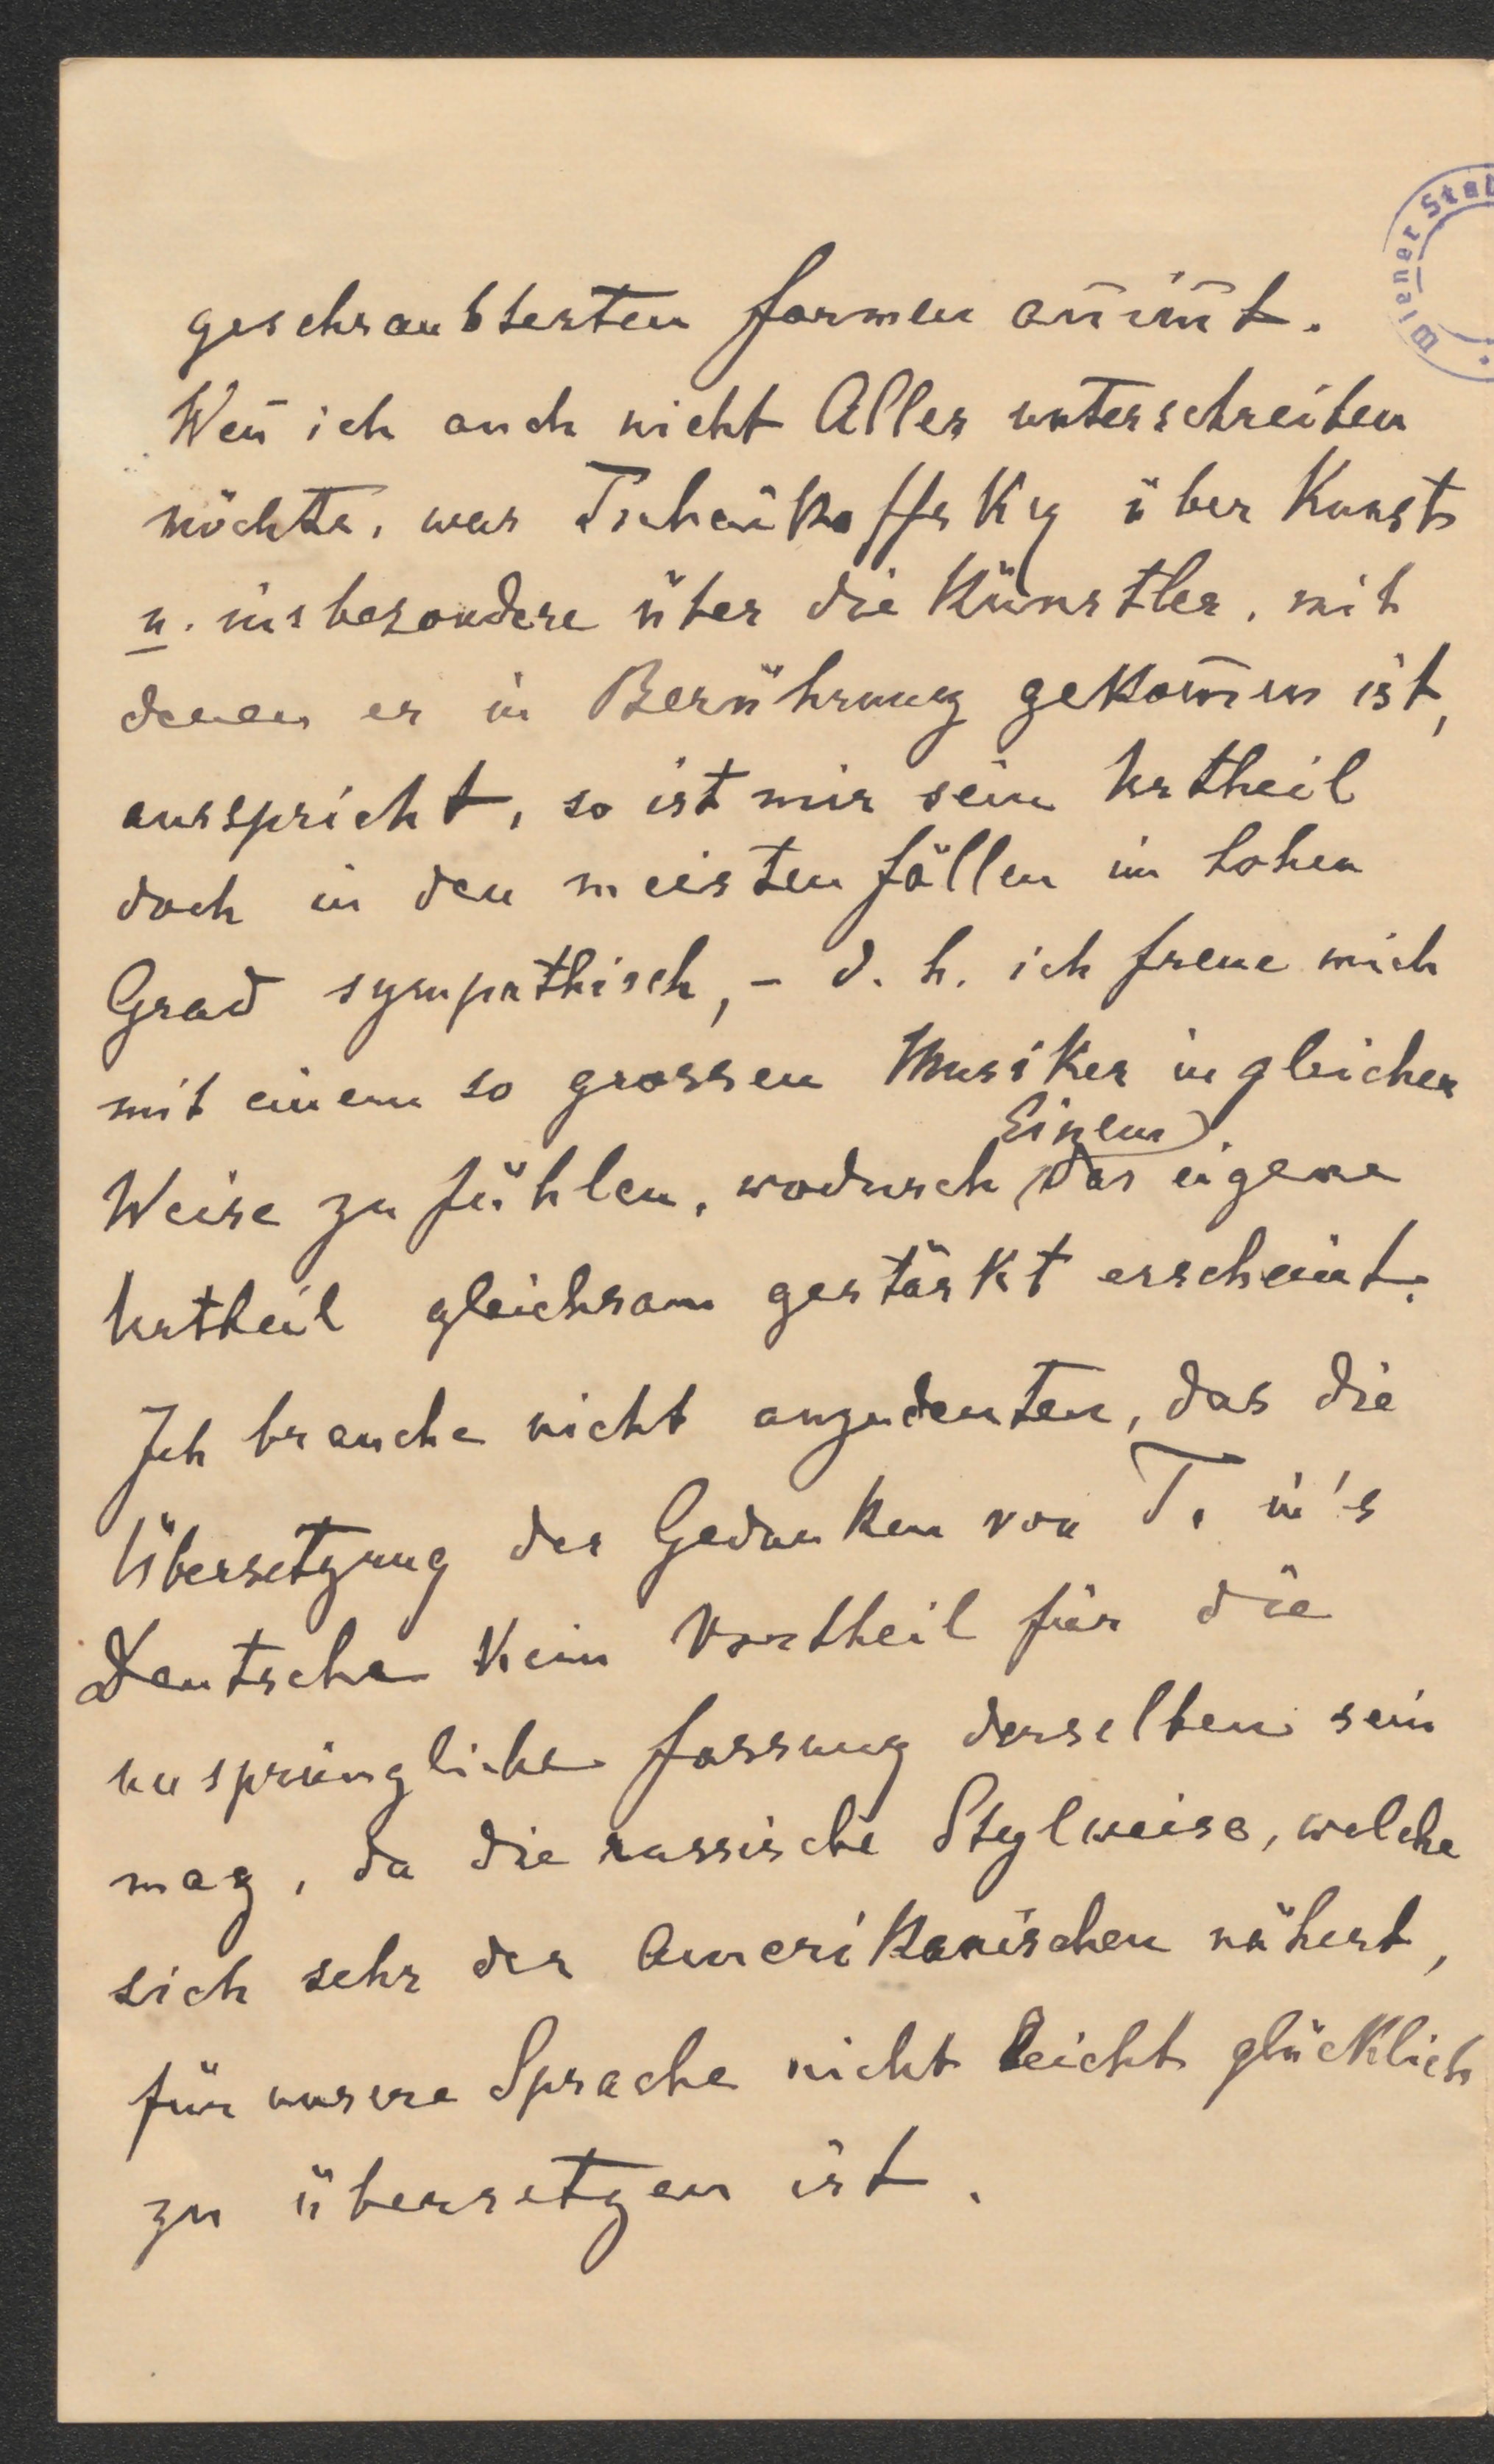 Wiener Stad
geschraubtesten Formen an̄im̄t.
Wen̄ ich auch nicht Alles unterschreiben
möchte, was Tschaikoffsky über Kunst
u. insbesondere über die Künstler, mit
denen er in Berührung gekom̄en ist,
ausspricht, so ist mir sein Urtheil
doch in den meisten Fällen im hohen
Grad sympathisch, – d. h. ich freue mich
mit einem so grossen Musiker in gleicher
Einem
Weise zu fühlen, wodurch das eigene
Urtheil gleichsam gestärkt erscheint.
Ich brauche nicht anzudeuten, das die
Übersetzung der Gedanken von T. in's
Deutsche kein Vortheil für die
ursprüngliche Fassung derselben sein
mag, da die russische Stylweise, welche
sich sehr der Amerikanischen nähert,
für unsere Sprache nicht leicht glücklich
zu übersetzen ist.